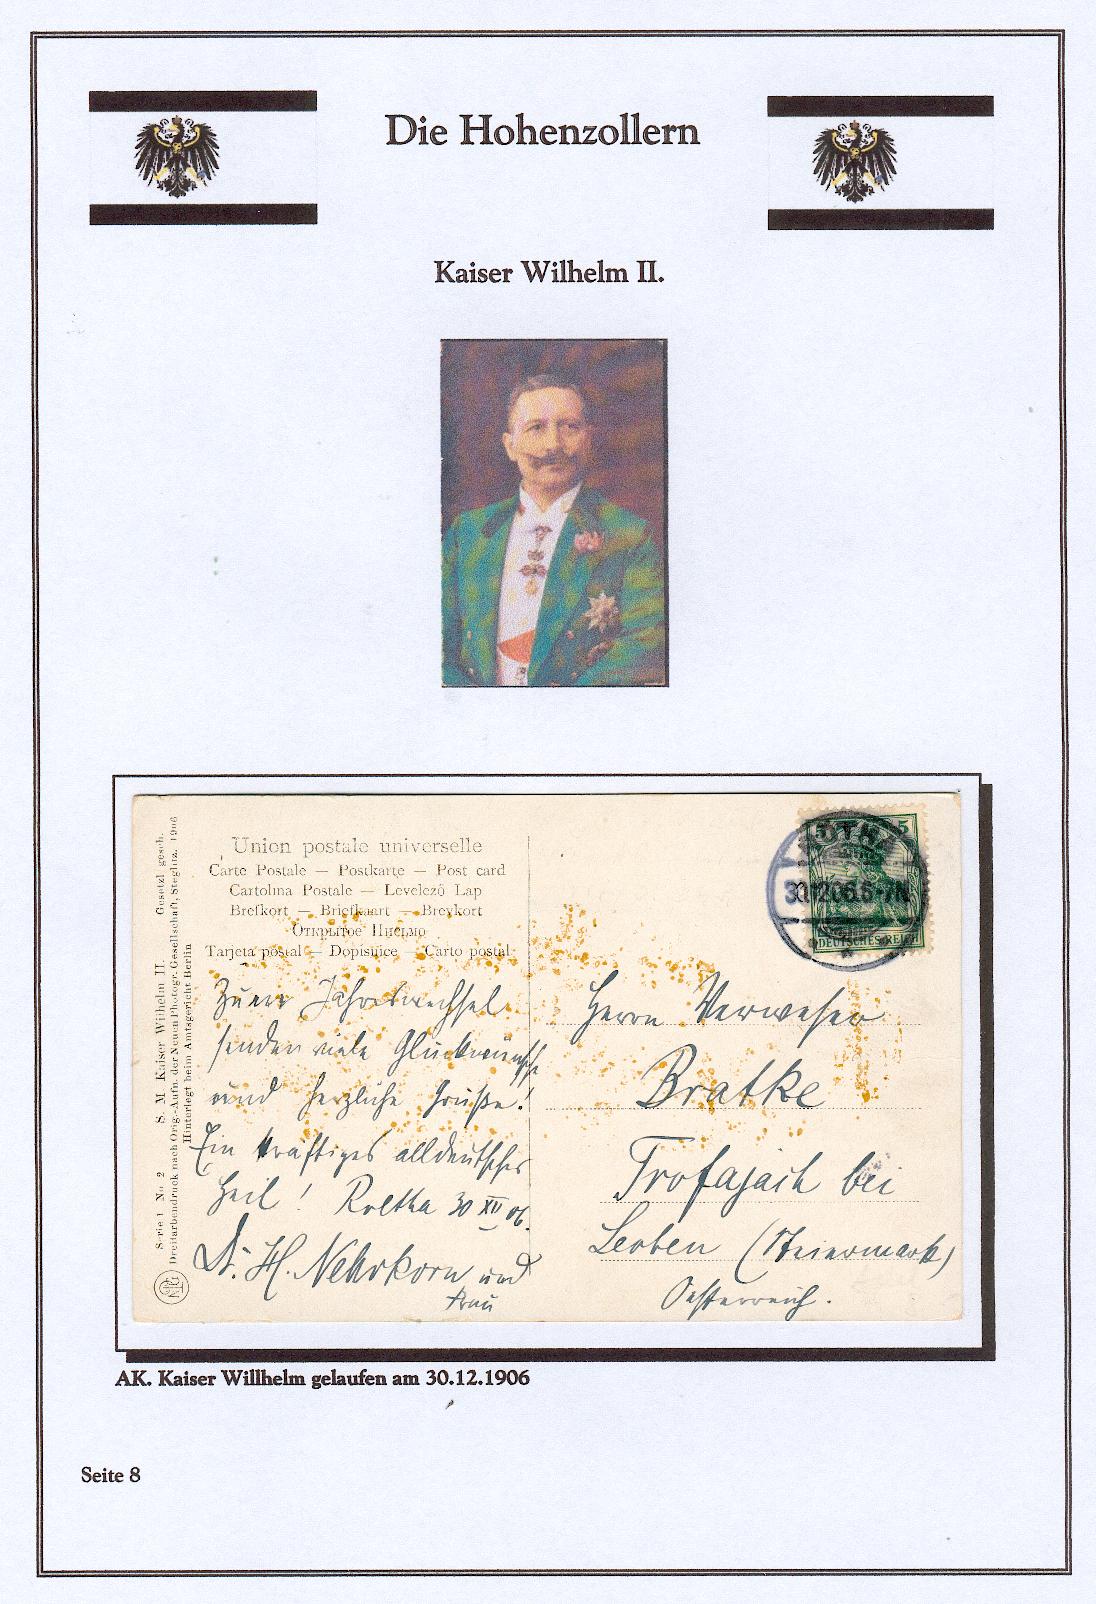 Die Hohenzollern
Kaiser Wilhelm II.
Serie 1 No. 2 S. M. Kaiser Wilhelm II. Gesetzl. gesch.
Dreifarbendruck nach Orig.-Aufn. der Neuen Photogr. Gesellschaft, Steglitz. 1906
Hinterlegt beim Amtsgericht Berlin
Union postale universelle
Carte Postale — Postkarte — Post card
Cartolina Postale — Levelező Lap
Brefkort — Briefkaart — Brevkort
Открытое Письмо
Tarjeta postal — Dopisnice — Carto postal
Zum Jahreswechsel
senden viele Glückwünsche
und herzliche Grüße!
Ein kräftiges alldeutsches
Heil! 30 XII 06.
Dr. H. Nehrkorn und
Frau
5 5
30.12.06.6-7N.
DEUTSCHES REICH
Herrn Verweser
Bratke
Trofajach bei
Leoben (Steiermark)
Oesterreich.
AK. Kaiser Willhelm gelaufen am 30.12.1906
Seite 8